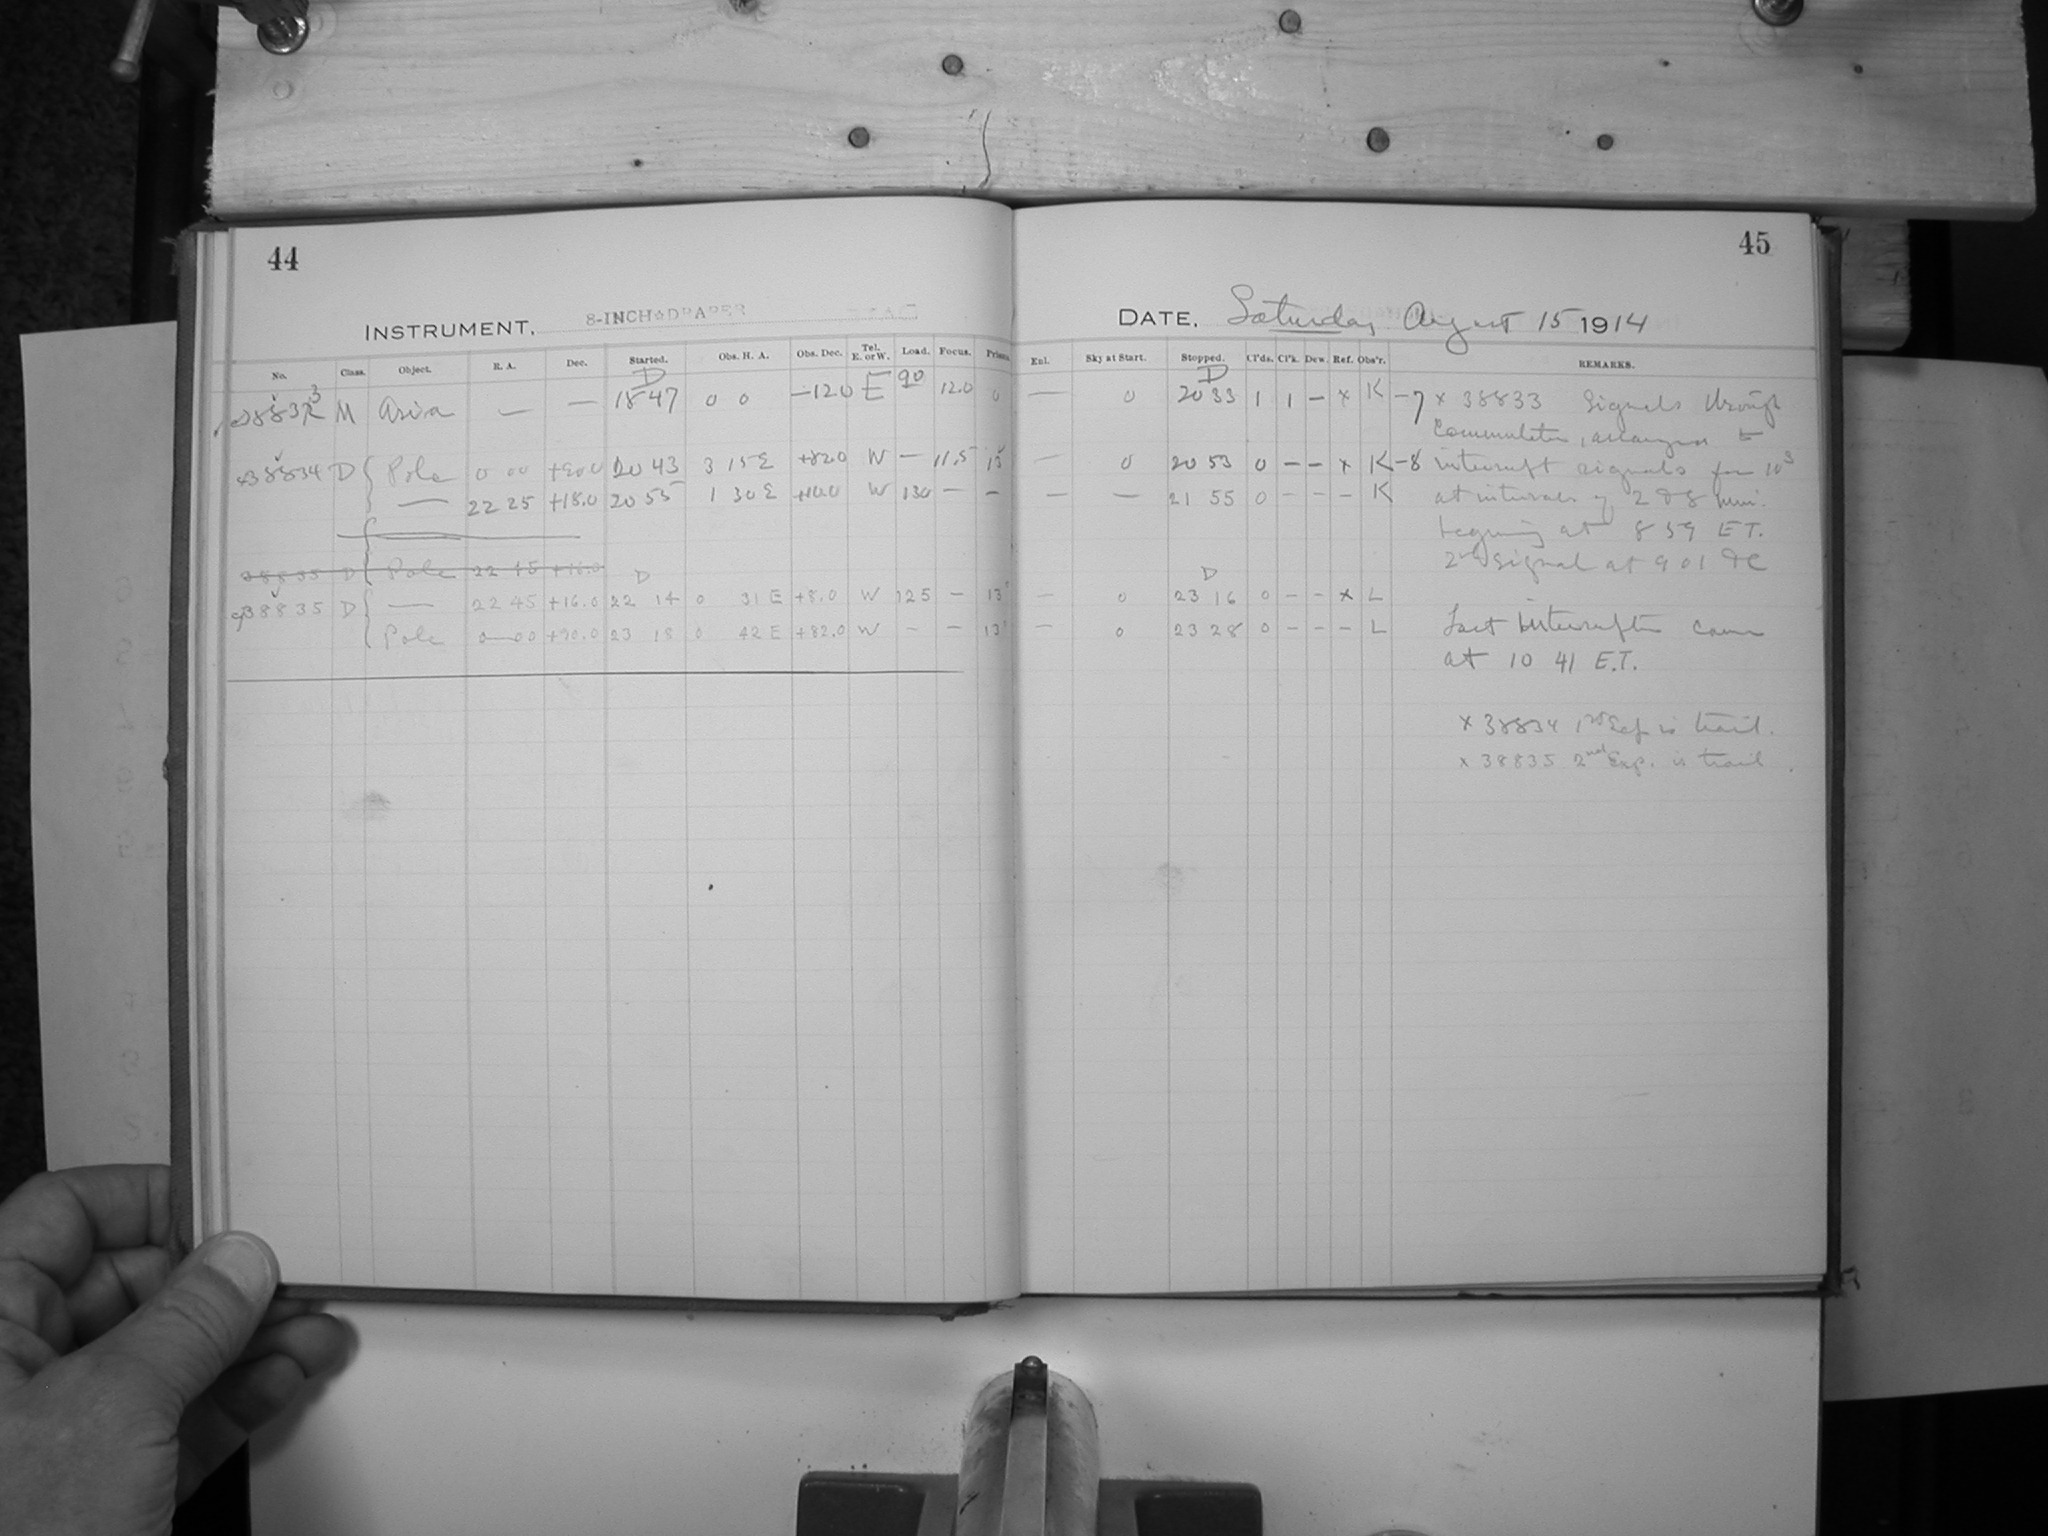 44
45
INSTRUMENT, 8-INCH DRAPER
DATE, Saturday August 15 1914
No. Class. Object. R. A. Dec. Started. Obs. H. A. Obs. Dec. Tel. E. or W. Load. Focus. Prism. Enl. Sky at Start. Stopped. Cl'ds. Cl'k. Dew. Ref. Obs'r. REMARKS.
D D
38833 M — — 18 47 0 0 -12.0 E 90 12.0 0 — 0 20 33 1 1 — x K -7 x 38833 Signals through
arranged to
38834 D Pole 0 00 +90.0 20 43 3 15 E +82.0 W — 11.5 13 — 0 20 53 0 — — x K -8 interrupt signals for 10s
— 22 25 +18.0 20 55 1 30 E +10.0 W 130 — — — — 21 55 0 - - - K at intervals of 2 min.
at 8 59 E.T.
38835 D Pole 22 45 +16.0 2nd signal at 9 01 &c
D D
38835 D — 22 45 +16.0 22 14 0 31 E +8.0 W 125 — 13° — 0 23 16 0 - - x L
Pole 0 00 +90.0 23 18 0 42 E +82.0 W — — 13° — 0 23 28 0 - - - L Last interruption came
at 10 41 E.T.
x 38834 1st Exp. is trail.
x 38835 2nd Exp. is trail.